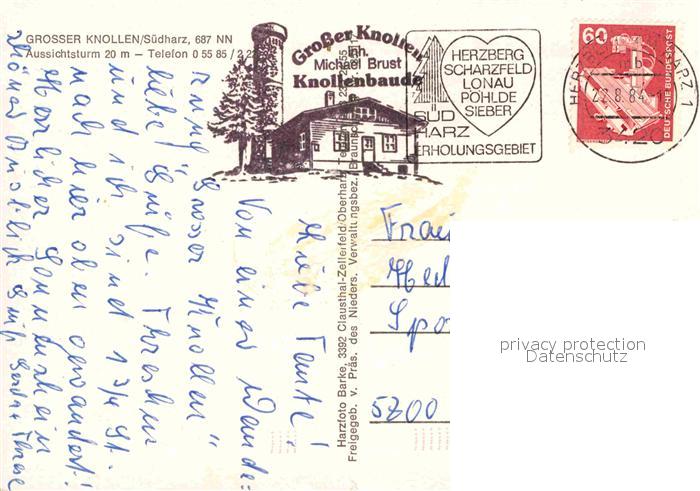 GROSSER KNOLLEN/Südharz, 687 NN
Aussichtsturm 20 m — Telefon 0 55 85 / 2 22
Großer Knollen
Inh.
Michael Brust
Knollenbaude
HERZBERG
SCHARZFELD
LONAU
PÖHLDE
SIEBER
SÜD
HARZ
ERHOLUNGSGEBIET
HERZBERG AM HARZ 1
mb
22.8.84
3420
60
DEUTSCHE BUNDESPOST
Harzfoto Barke, 3392 Clausthal-Zellerfeld/Oberharz
Freigegeb. v. Präs. des Nieders. Verwaltungsbez. Braunschweig
Liebe Tante!
Von einer Wande-
rung "Grosser Knollen"
liebe Grüße. Thereschen
und ich sind 1 3/4 St.
nach hier oben gewandert.
Herrlicher Sonnenschein
Grüße Gerda + Therese
5200
privacy protection
Datenschutz